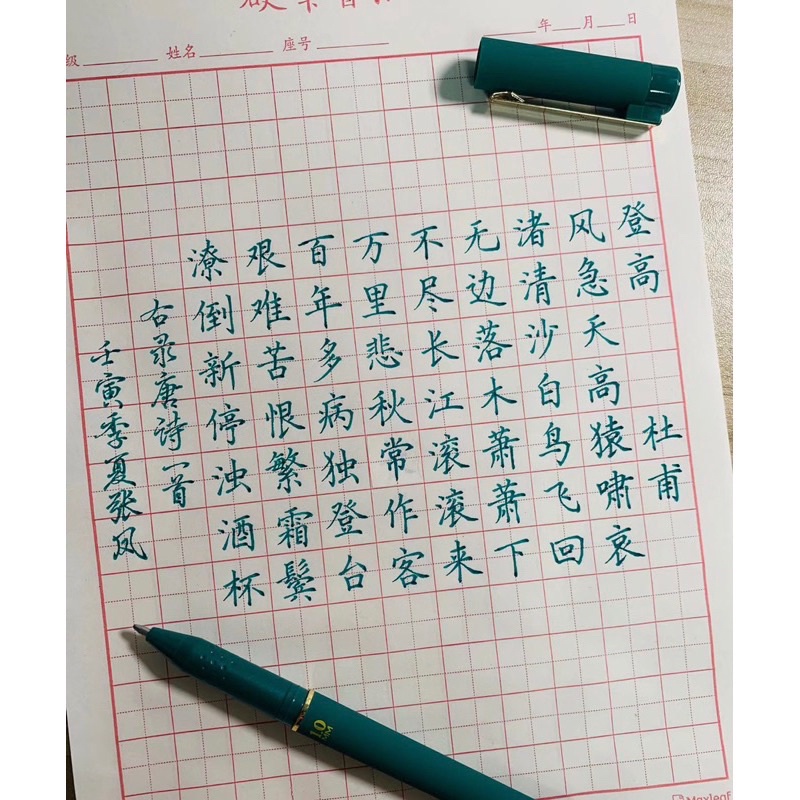 级 姓名 座号 年 月 日
登高 杜甫
风急天高猿啸哀
渚清沙白鸟飞回
无边落木萧萧下
不尽长江滚滚来
万里悲秋常作客
百年多病独登台
艰难苦恨繁霜鬓
潦倒新停浊酒杯
右录唐诗一首
壬寅季夏张凤
1.0
MM
Maxleaf